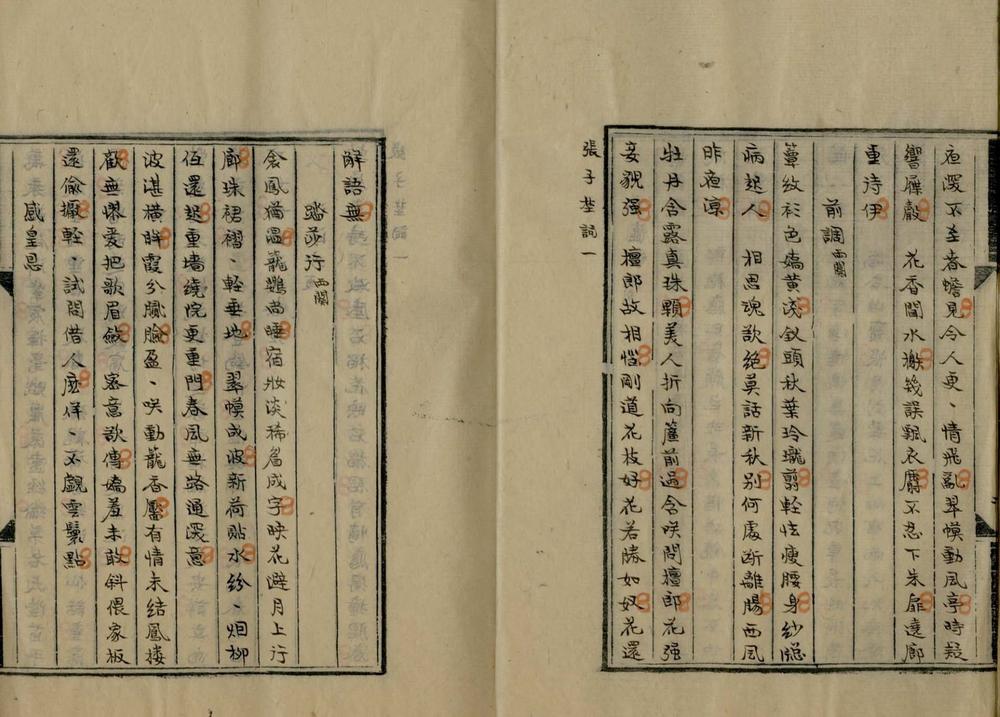 夜深不至春蟾見令人更、情飛亂翠幙動風亭時疑
響屧聲　花香閒水榭幾誤飄衣麝不忍下朱扉遶廊
重待伊
前調 西閣
簟紋衫色嬌黃淺釵頭秋葉玲瓏翦輕怯瘦腰身紗隐
病起人　相思魂欲絕莫話新秋别何處断離腸西風
昨夜凉
牡丹含露真珠顆美人折向簾前過含咲問檀郎花强
妾貌强　檀郎故相惱剛道花枝好花若勝如奴花還
張子埜詞一
解語無
踏莎行 西閣
衾鳳猶溫籠鸚尚睡宿妝淡稀眉成字映花避月上行
廊珠裙褶、輕垂地　翠幙成波新荷貼水紛、烟柳
低還起重墻繞院更重門春風無路通深意
波湛橫眸霞分膩臉盈、咲動籠香靨有情未結鳳樓
歡無憀愛把歌眉斂　密意欲傳嬌羞未敢斜偎象板
還偷撧輕、試問借人麽佯、不覷雲鬟點
感皇恩